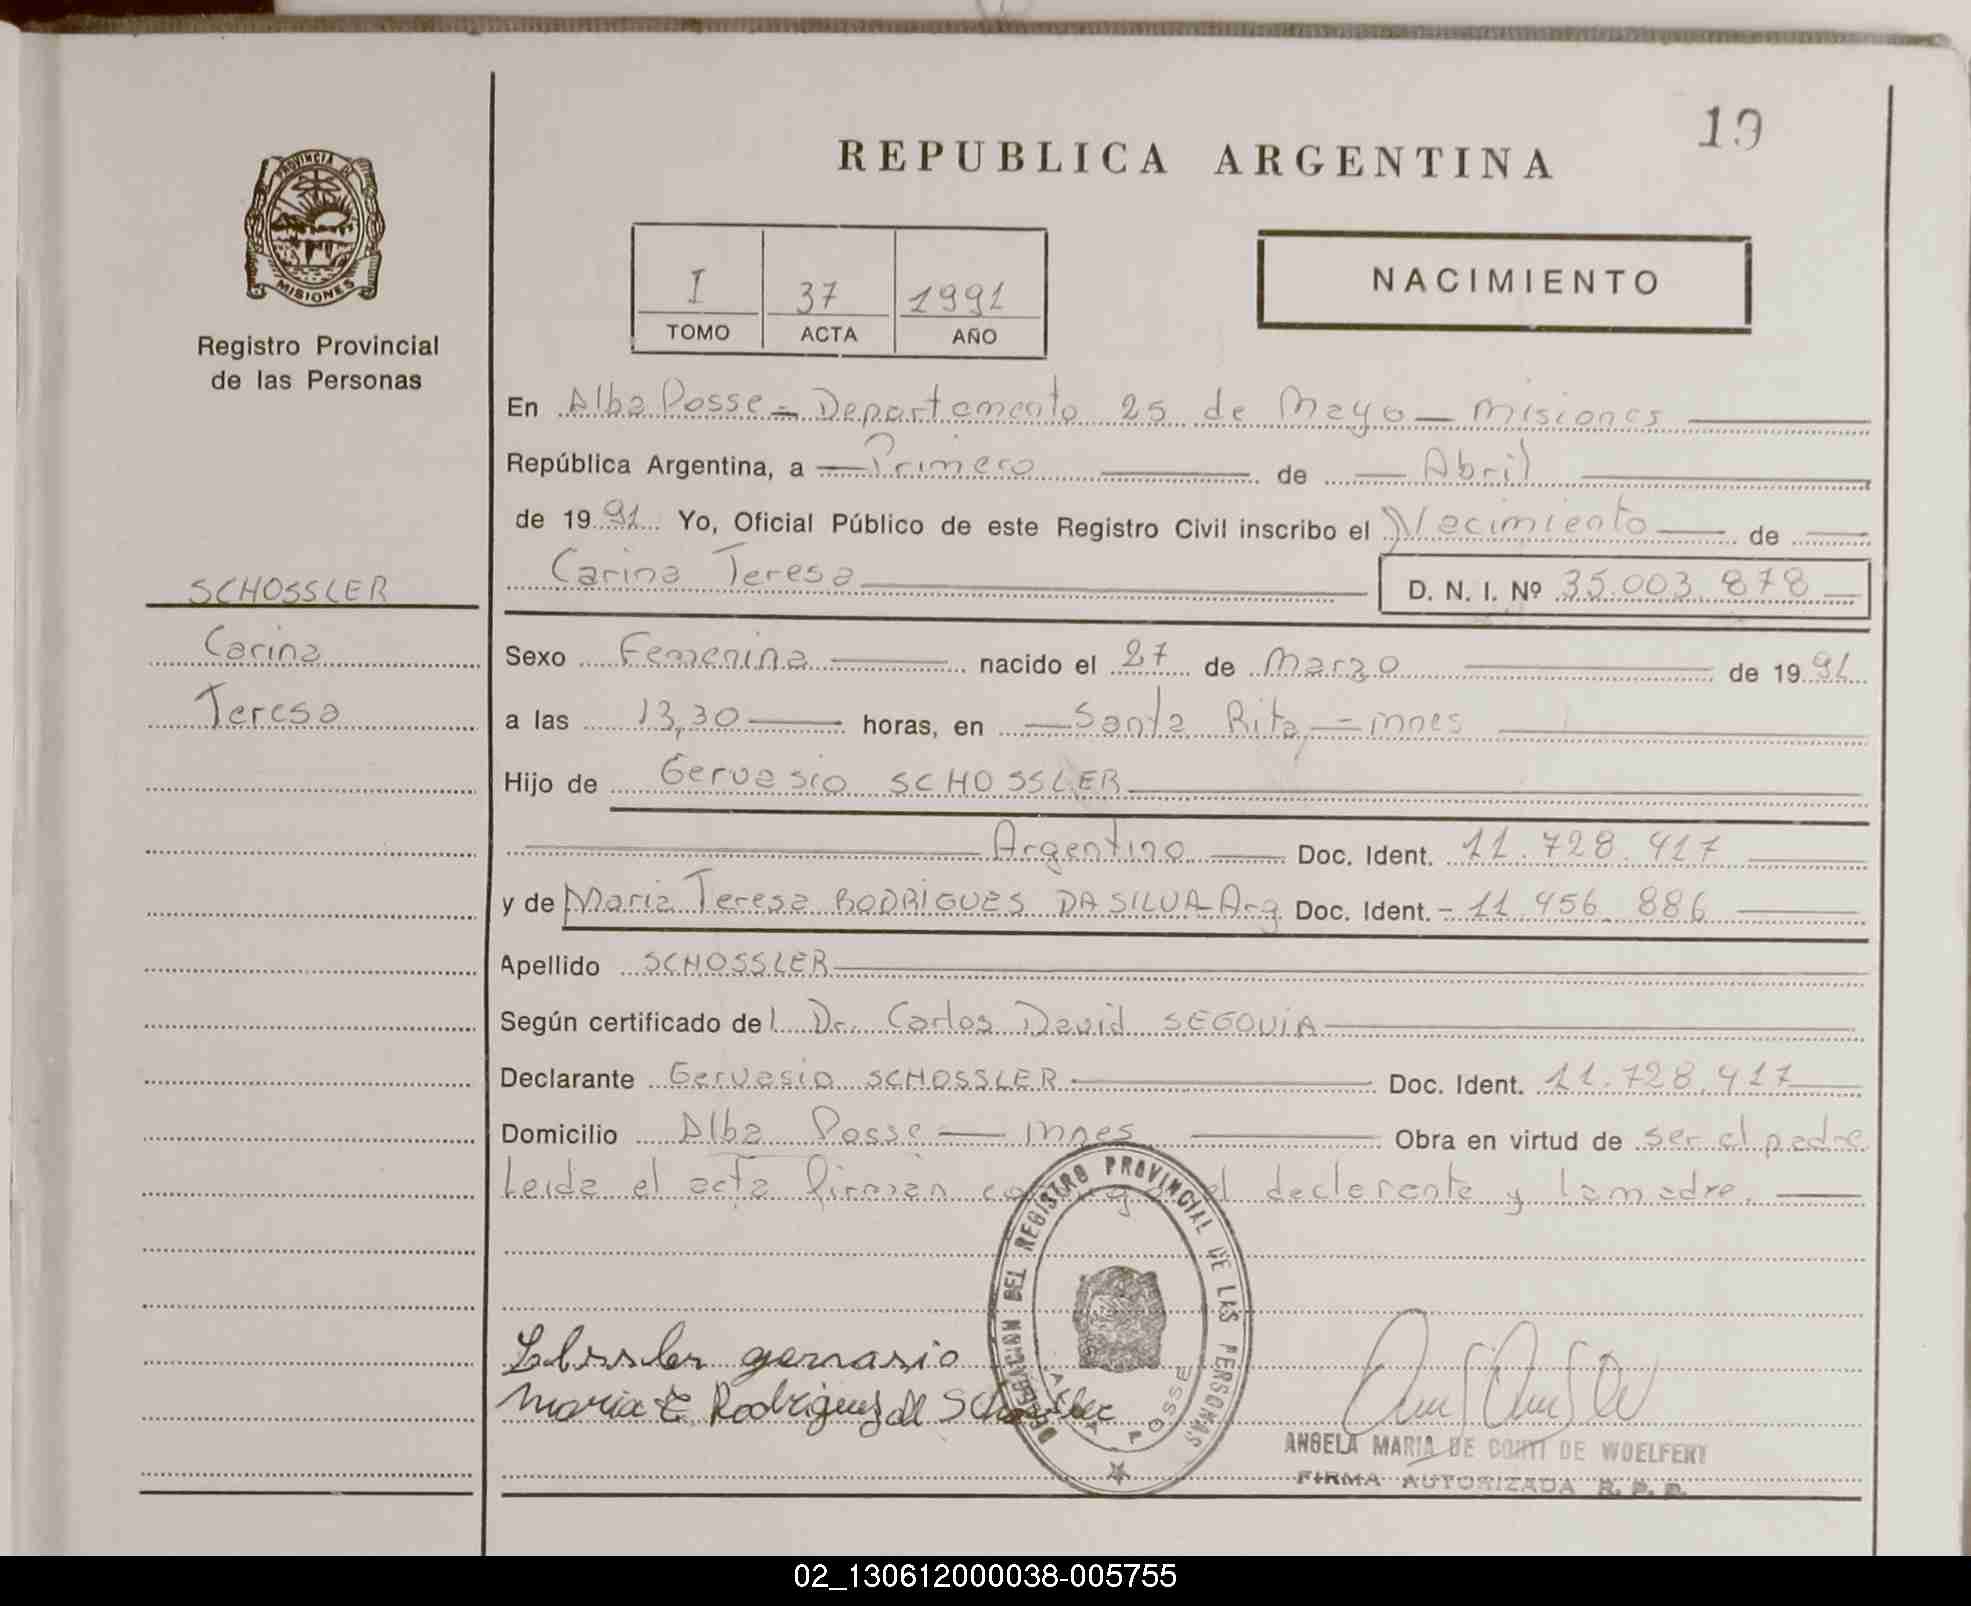 19
REPUBLICA ARGENTINA
PROVINCIA DE
MISIONES
Registro Provincial
de las Personas
I 37 1991
TOMO ACTA AÑO
NACIMIENTO
En Alba Posse - Departamento 25 de Mayo - Misiones
República Argentina, a Primero de Abril
de 1991 Yo, Oficial Público de este Registro Civil inscribo el Nacimiento de
Carina Teresa D. N. I. Nº 35.003.878
SCHOSSLER
Carina
Teresa
Sexo Femenina nacido el 27 de Marzo de 1991
a las 13,30 horas, en Santa Rita, - mnes
Hijo de Gervasio SCHOSSLER
Argentino Doc. Ident. 11.728.417
y de Maria Teresa RODRIGUES DA SILVA Arg Doc. Ident. - 11.456.886
Apellido SCHOSSLER
Según certificado del Dr. Carlos David SEGOVIA
Declarante Gervasio SCHOSSLER Doc. Ident. 11.728.417
Domicilio Alba Posse - mnes Obra en virtud de ser el padre
Leida el acta firman conmigo el declarante y la madre.
DELEGACION DEL REGISTRO PROVINCIAL DE LAS PERSONAS
ALBA POSSE
gervasio
Maria T. Rodrigues de Schossler
ANGELA MARIA DE CONTI DE WOELFERT
FIRMA AUTORIZADA R. P. P.
02_130612000038-005755